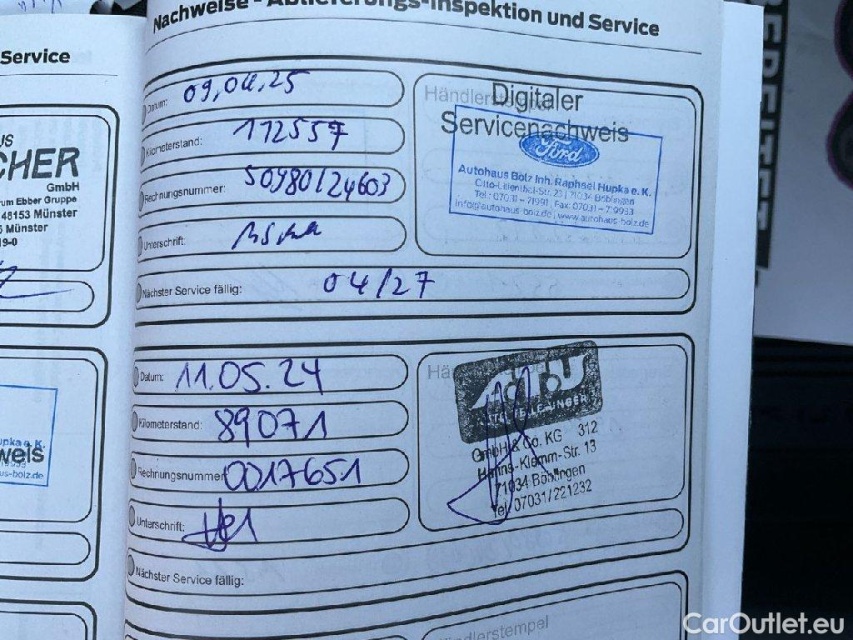 Service
CHER
GmbH
rum Ebber Gruppe
48153 Münster
Münster
19-0
weis
Nachweise - Ablieferungs-Inspektion und Service
Datum: 09,04,25
Kilometerstand: 112557
Rechnungsnummer: 50980124603
Unterschrift:
Nächster Service fällig: 04/27
Digitaler
Servicenachweis
Ford
Autohaus Bolz Inh. Raphael Hupka e. K.
Otto-Lilienthal-Str. 23 | 71034 Böblingen
Tel.: 07031 - 71991, Fax: 07031 - 719933
info@autohaus-bolz.de | www.autohaus-bolz.de
Datum: 11.05.24
Kilometerstand: 89071
Rechnungsnummer: 0017651
Unterschrift:
Nächster Service fällig:
GmbH & Co. KG 312
Hanns-Klemm-Str. 13
71034 Böblingen
Tel. 07031/221232
Händlerstempel
CarOutlet.eu